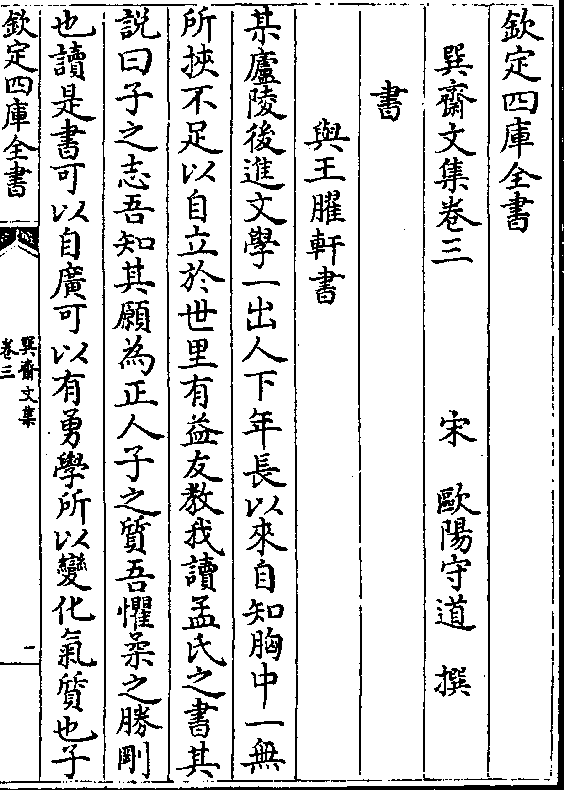 欽定四庫全書
巽齋文集卷三
宋 歐陽守道 撰
書
與王臞軒書
某廬陵後進文學一出人下年長以來自知胸中一無
所挾不足以自立於世里有益友教我讀孟氏之書其
說曰子之志吾知其願為正人子之質吾懼柔之勝剛
也讀是書可以自廣可以有勇學所以變化氣質也子
欽定四庫全書
巽齋文集
卷三
一